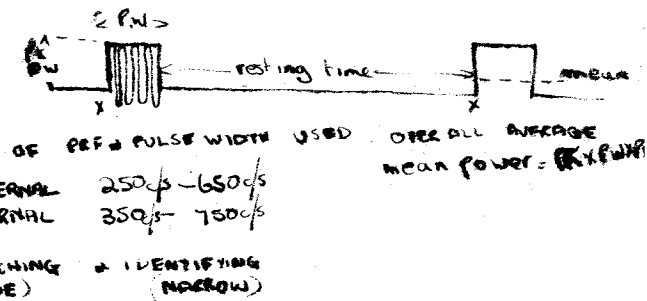 < P.W >
PK
PW
resting time
mean
X
X
OF PRF & PULSE WIDTH USED
OVER ALL AVERAGE
mean power = PK X PW X
ERNAL 250c/s - 650c/s
RNAL 350c/s - 750c/s
& IDENTIFYING
(NARROW)